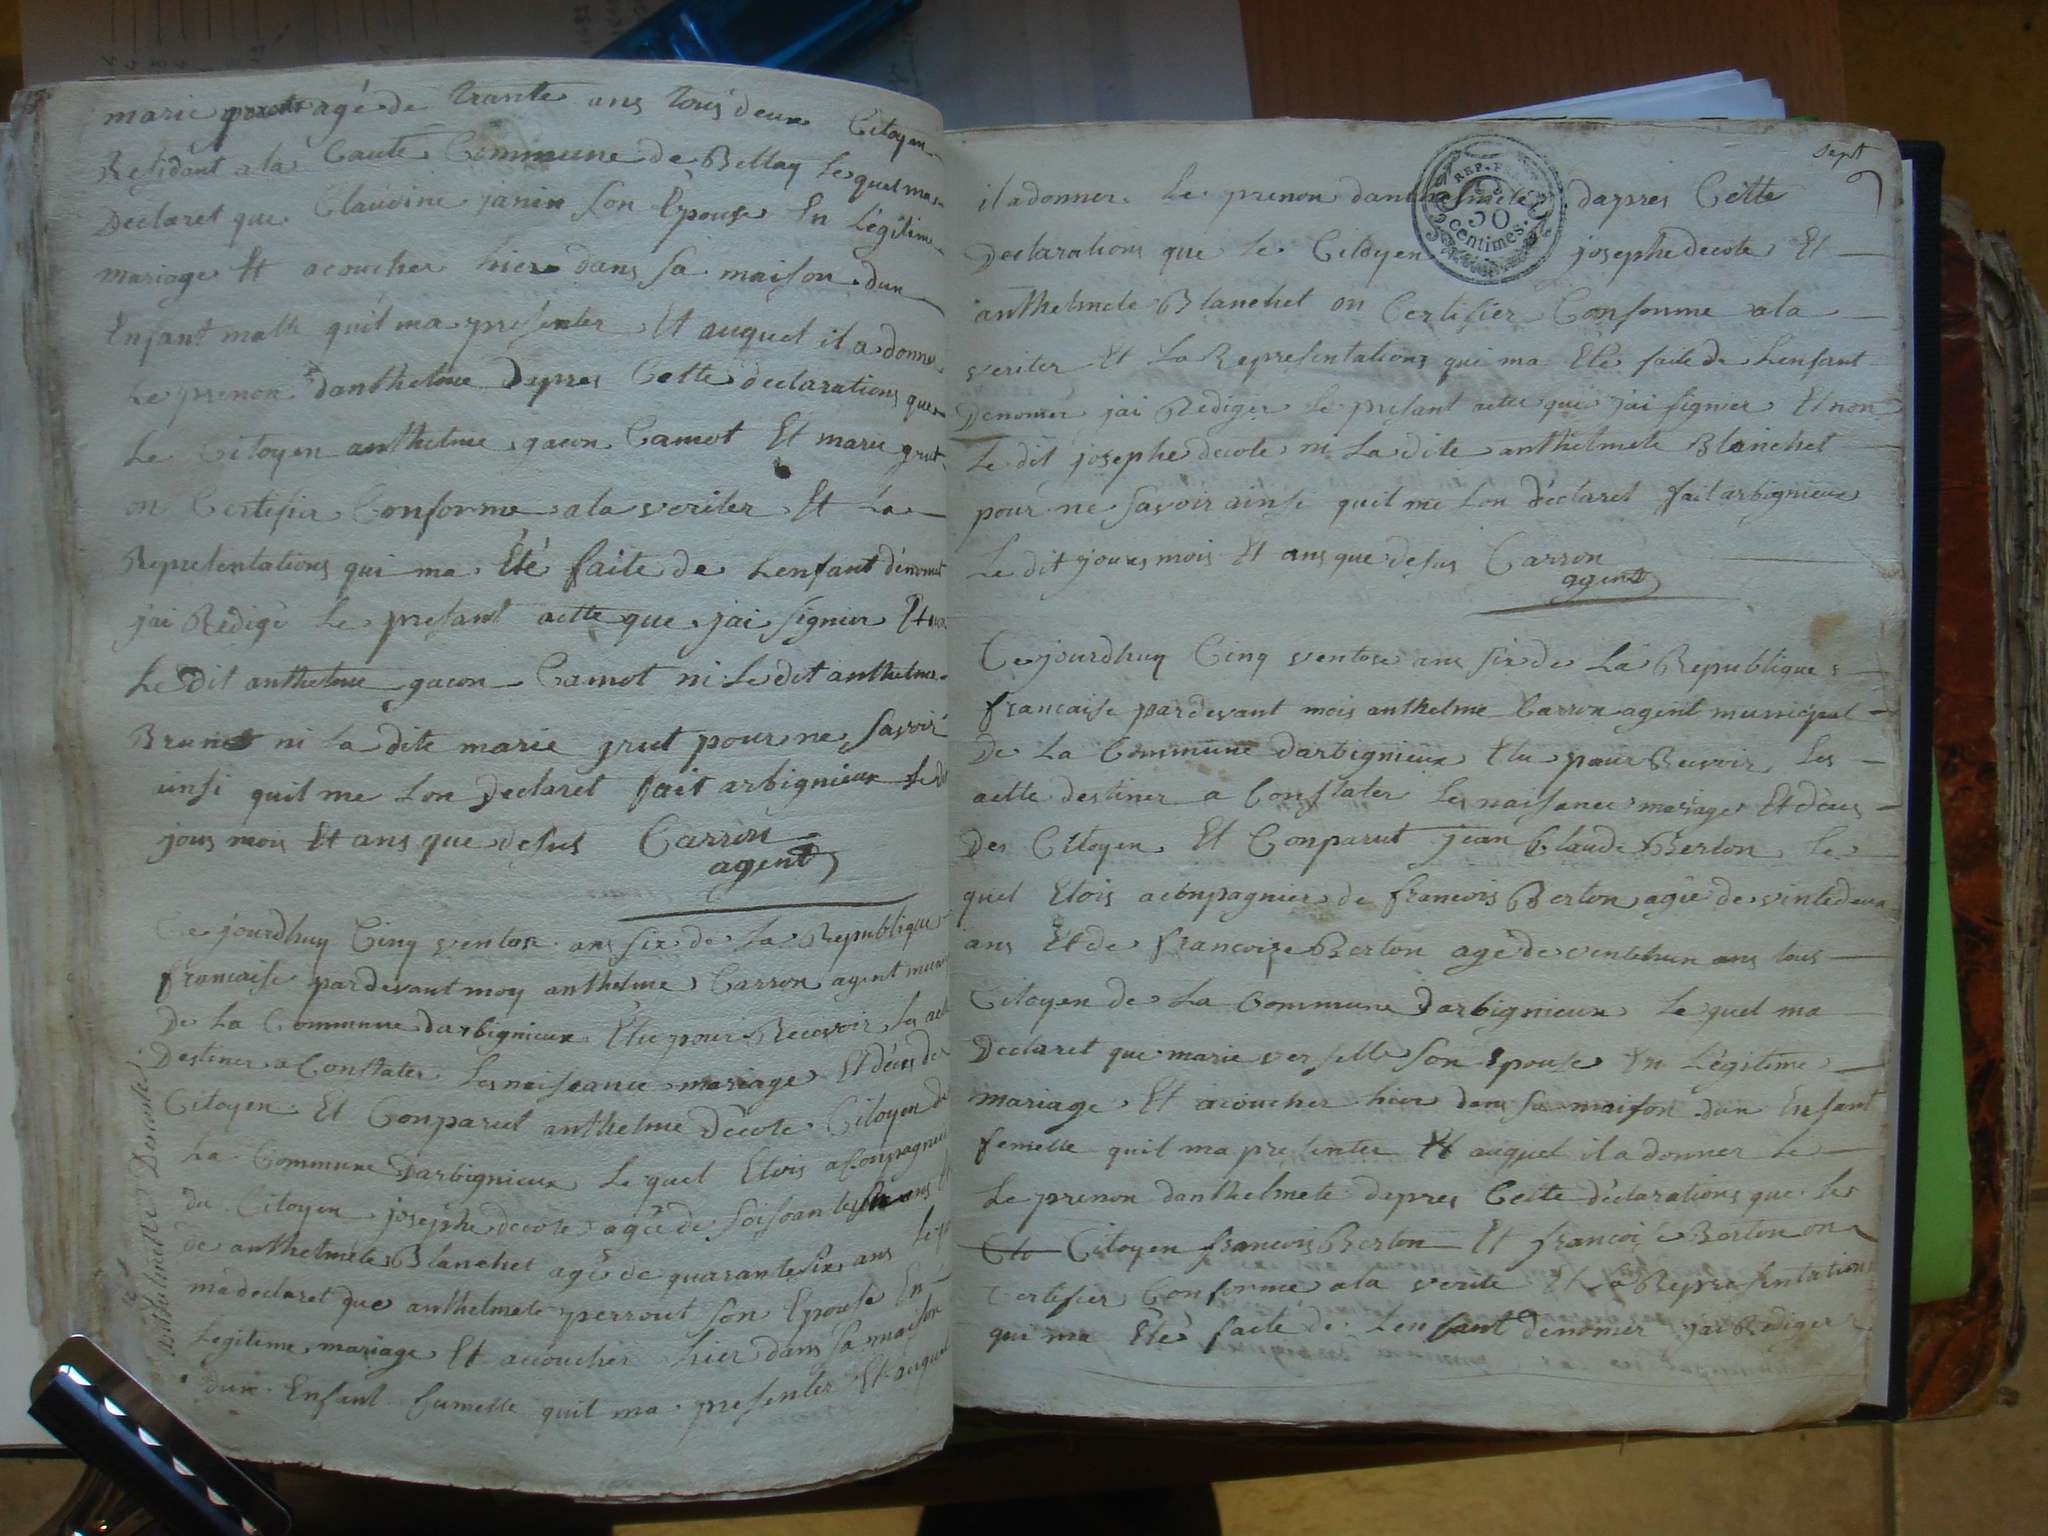 marie agé de trante ans tous deux Citoyen
Residant a la Caute Commune de Bellay le quel ma
Declaret que Claudine janin son Epouse En Légitime
mariage Et acoucher hier dans sa maison dun
Enfant malle quil ma présenter Et auquel il a donner
Le prenon danthelme depres Cette declarations que
Le Citoyen anthelme gacon Camot Et marie grut
on Certifier Conforme a la veriter Et La
Representations qui ma Eté faite de Lenfant dénomet
jai Rédigé le presant actte que jai signier Et non
Le dit anthelme gacon Camot ni Le dit anthelme
Brunet ni la dite marie grut pour ne savoir
ainsi quil me lon Declaret fait arbignieux le dit
jous mois Et ans que desus Carron
agent
Ce jourdhuy Cinq ventose ans six de La Republique
francaise pardevant moy anthelme Carron agent
De La Commune darbignieux Elu pour Recevoir Les actte
Destiner a Constater Les naiseance mariage Et déces des
Citoyen Et Conparut anthelme Décote Citoyen de
La Commune Darbignieux Le quel Etois aConpagnier
du Citoyen josephe decote agée de soisoante ans Et
de anthelmete Blanchet agé de quarante six ans Le
ma declaret que anthelmete perrout son Epouse En
Legitime mariage Et acoucher hier dans sa maison
dun Enfant fumelle quil ma presenter Et auquel
anthelmette Decotte
sept
il a donner Le prenon danthelmete dapres Cette
REP. FRA
50
centimes.
Declarations que Le Citoyen josephe decote Et
anthelmete Blanchet on Certifier Conforme a la
veriter Et La Representations qui ma Eté faite de Lenfant
Denomer jai Rediger Le presant actte que jai signier Et non
Le dit josephe decote ni La dite anthelmete Blanchet
pour ne savoir ainsi quil me lon déclaret fait arbignieux
Le dit joures mois Et ans que desus Carron
agent
Ce jourdhuy Cinq ventose ans six de La Republique
francaise pardevant mois anthelme Carron agent municipal
De La Commune darbignieux Elu pour Recevoir Les
actte destiner a Constater Les naisance mariage Et déces
Des Citoyen Et Conparut jean Claude Berlon Le
quel Etois aconpagnier de francois Berlon agée de vintedeux
ans Et de francoize Berlon agé de ventehun ans tous
Citoyen de La Commune Darbignieux Le quel ma
Declaret que marie verselle son Epouse En Légitime
mariage Et acoucher hier dans sa maison dun Enfant
femelle quil ma presenter Et auquel il a donner Le
Le prenon danthelmete depres Cette déclarations que Les
Cit Citoyen francois Berlon Et francoise Berlon on
Certifier Conforme a la verite Et La Representation
qui ma Eté faite de Lenfant denomer jai Rediger